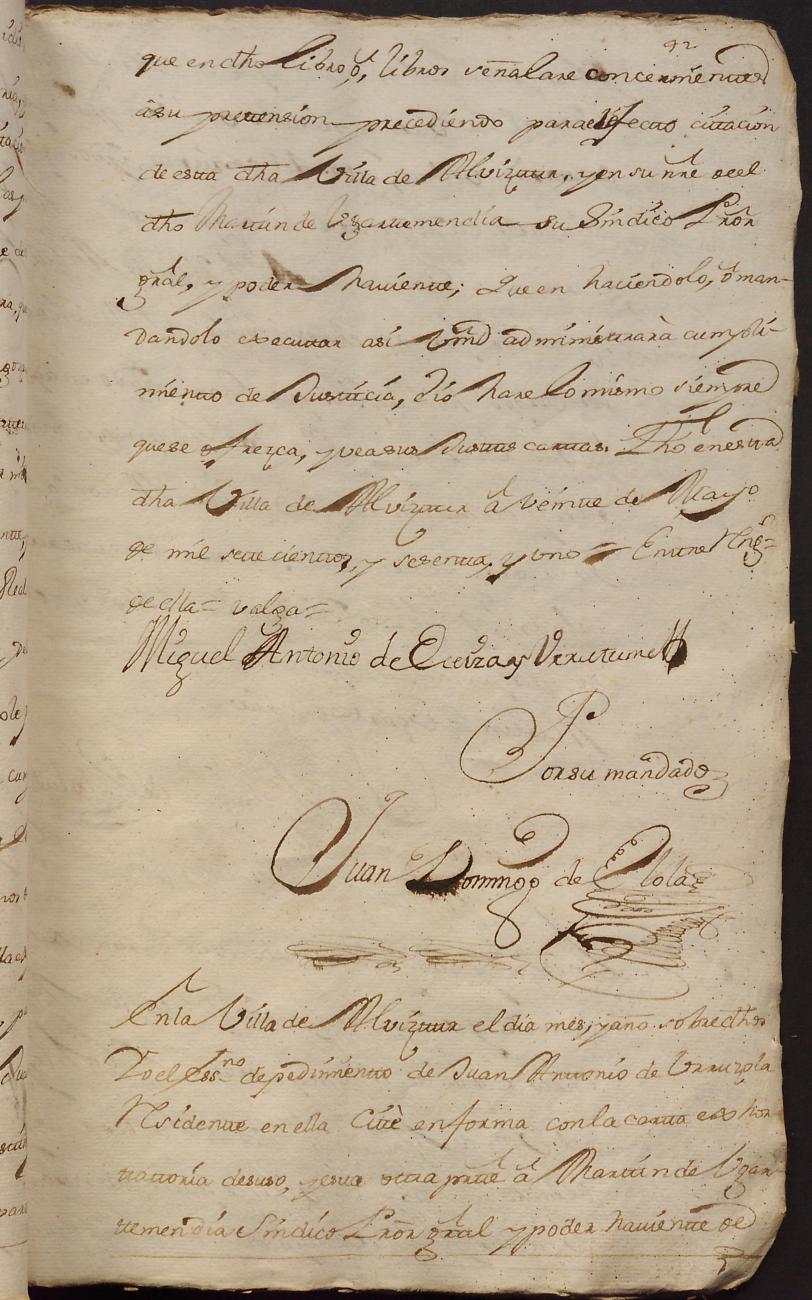 92
que en dho libro, ó, libros señalare concernientes
à su pretension precediendo para el efecto citacion
de esta dha Villa de Alviztur, y en su nre de el
dho Martin de Vgartemendia su Sindico Pror
gral, y poder haviente; Que en haciendolo, ó man-
dandolo executar asi Vmd administrarà cumpli-
miento de Justicia, è io hare lo mismo siempre
que se ofrezca, y vea sus Justas cartas. Fho en esta
dha Villa de Alviztur à veinte de Mayo
de mil setecientos, y setenta, y uno = Entre Rngs =
de ella = valga =
Miguel Antonio de y
Por su mandado
Juan Domingo de Elola
En la Villa de Alviztur el dia mes, y año sobredhos
Yo el Essno de pedimiento de Juan Antonio de Vrruzola
Residente en ella Citè en forma con la carta exhor
tatoria desuso, y esta otra parte à Martin de Vgar
temendia Sindico Pror gral y poder haviente de